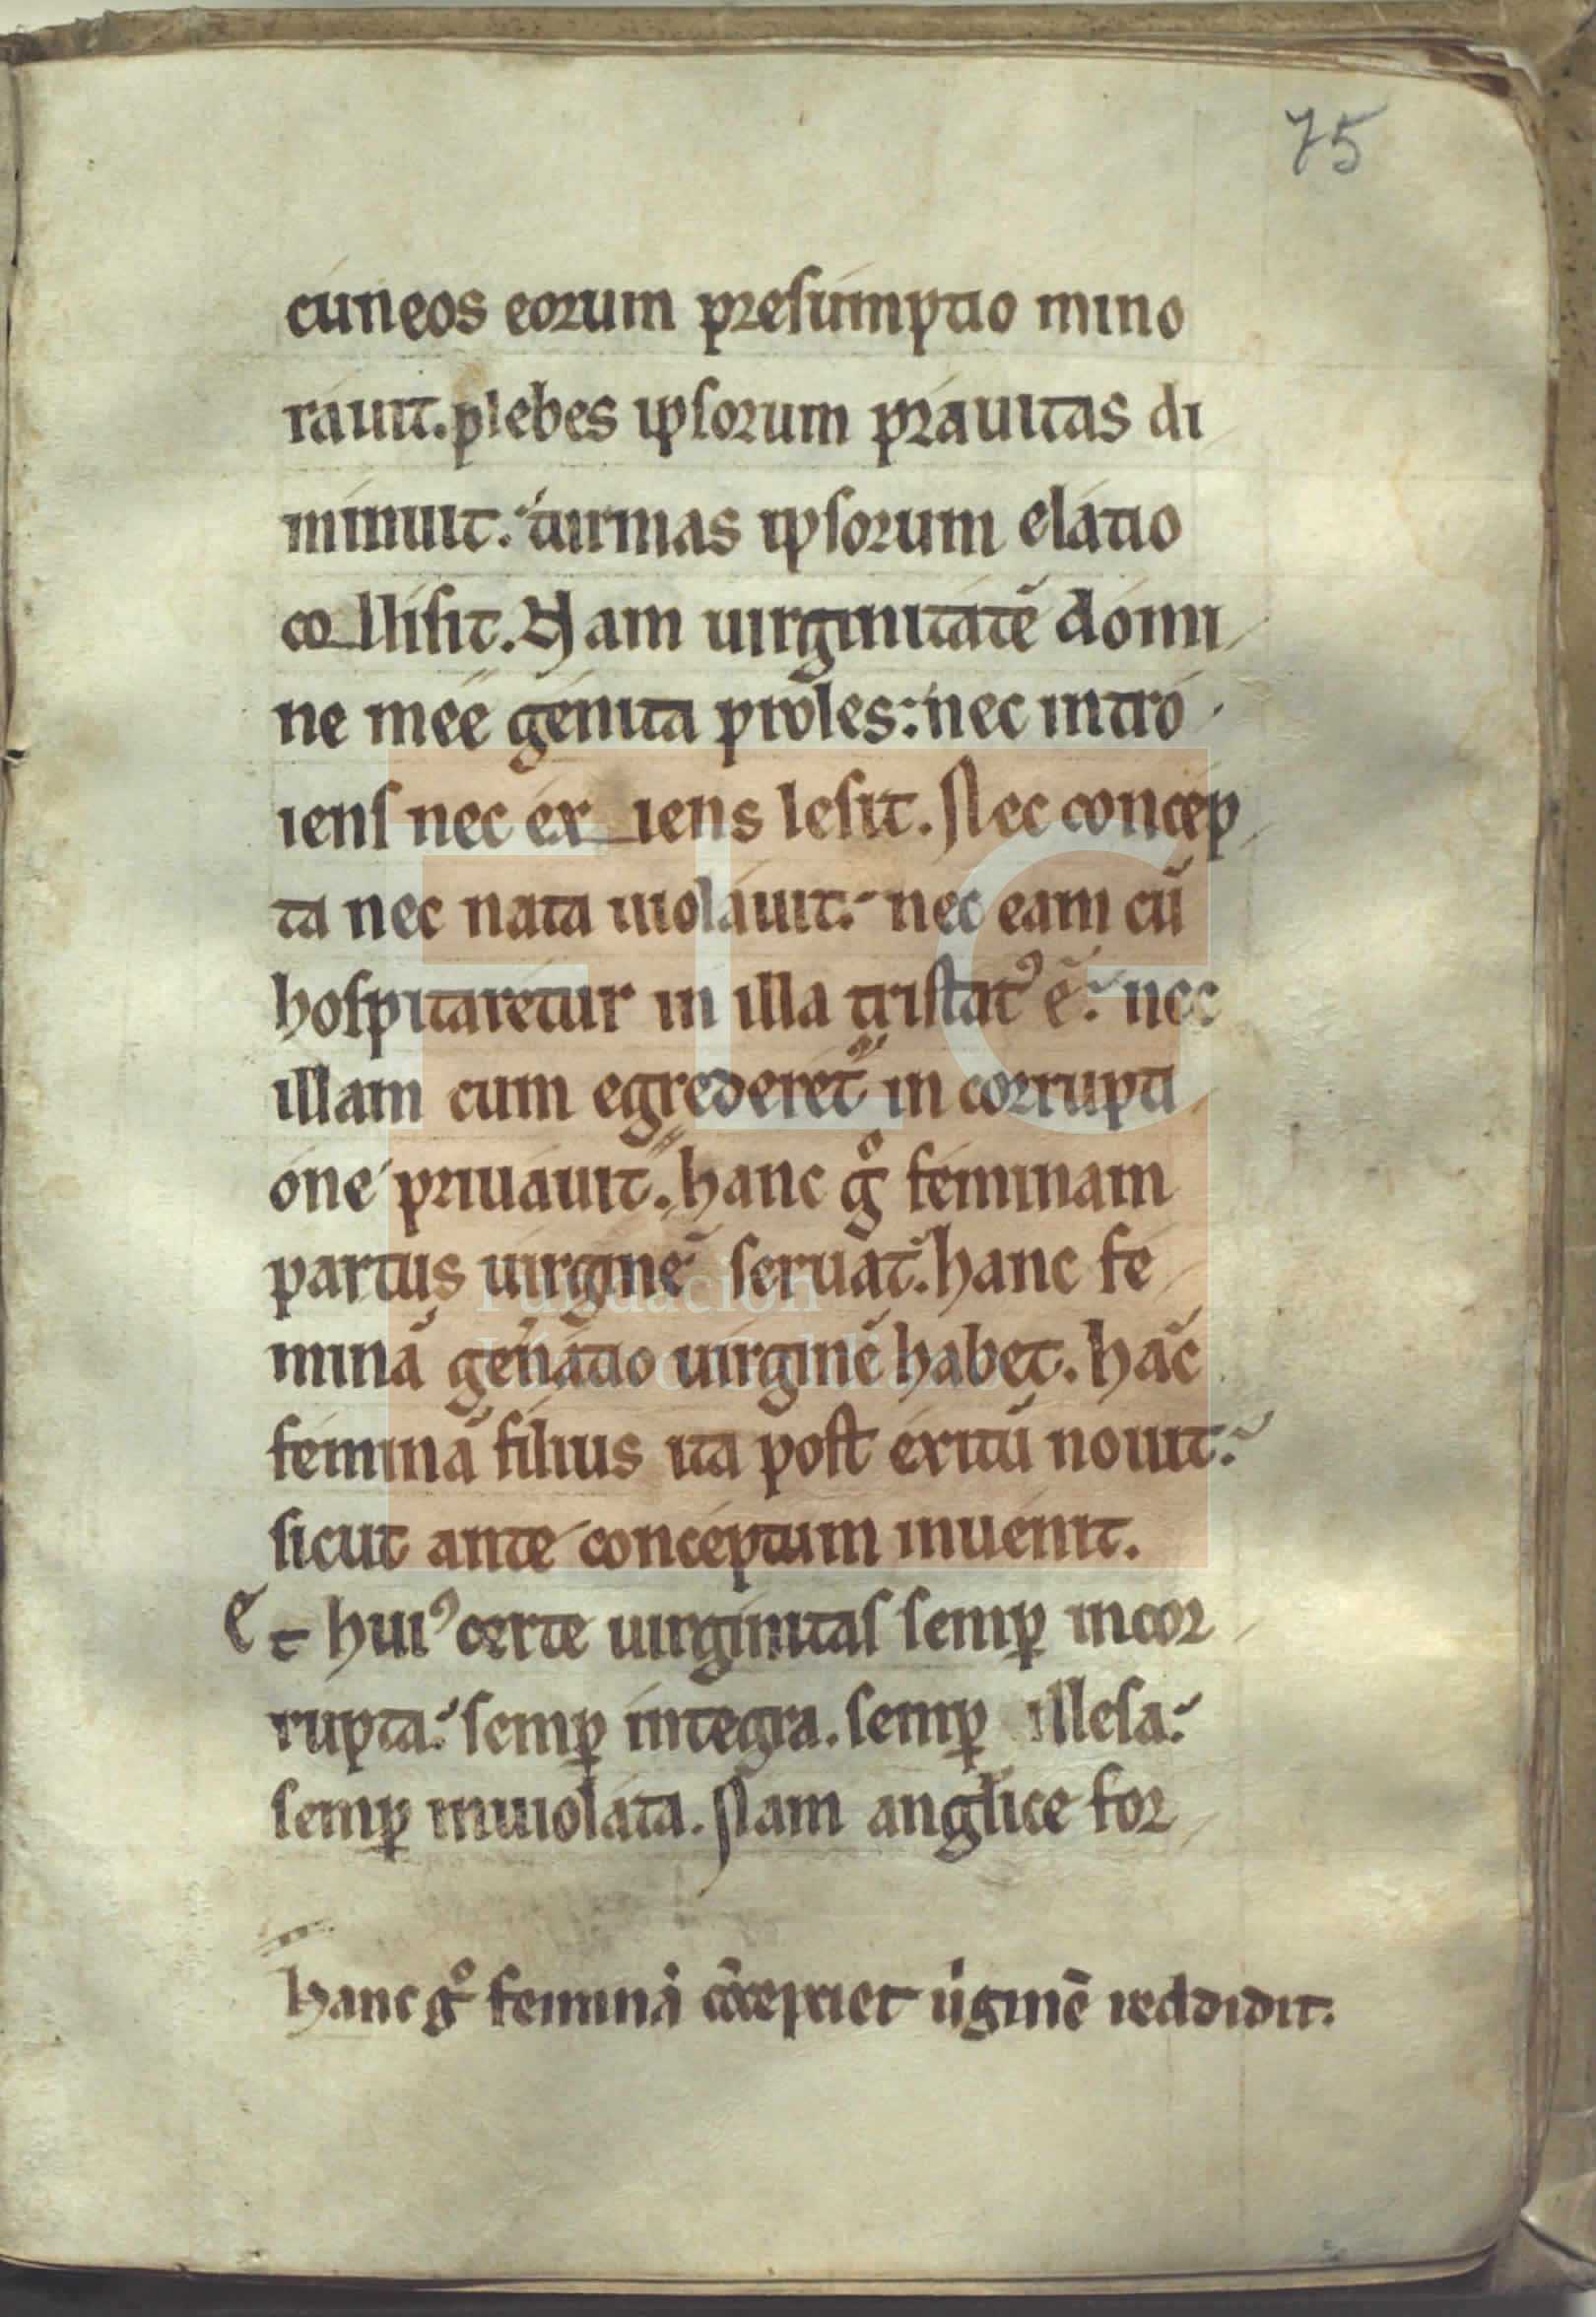 75
cuneos eorum presumptio mino
rauit. plebes ipsorum prauitas di
minuit. turmas ipsorum elatio
collisit. Nam uirginitatē domi
ne meę genita proles: nec intro
iens nec ex iens lesit. Nec concep
ta nec nata uiolauit. nec eam cū
hospitaretur in illa tristatꝰ ē. nec
illam cum egrederet᷑ in corrupti
one priuauit. hanc gͦ feminam
partus uirginē seruat. hanc fe
minā gen̄atio uirginē habet. hāc
feminā filius ita post exitū nouit.
sicut ante conceptum inuenit.
Et huiꝰ certe uirginitas semꝑ incor
rupta. semꝑ integra. semꝑ illesa.
semꝑ inuiolata. Nam anglice for
hanc gͦ feminā reddidit.
FLG
Fundación